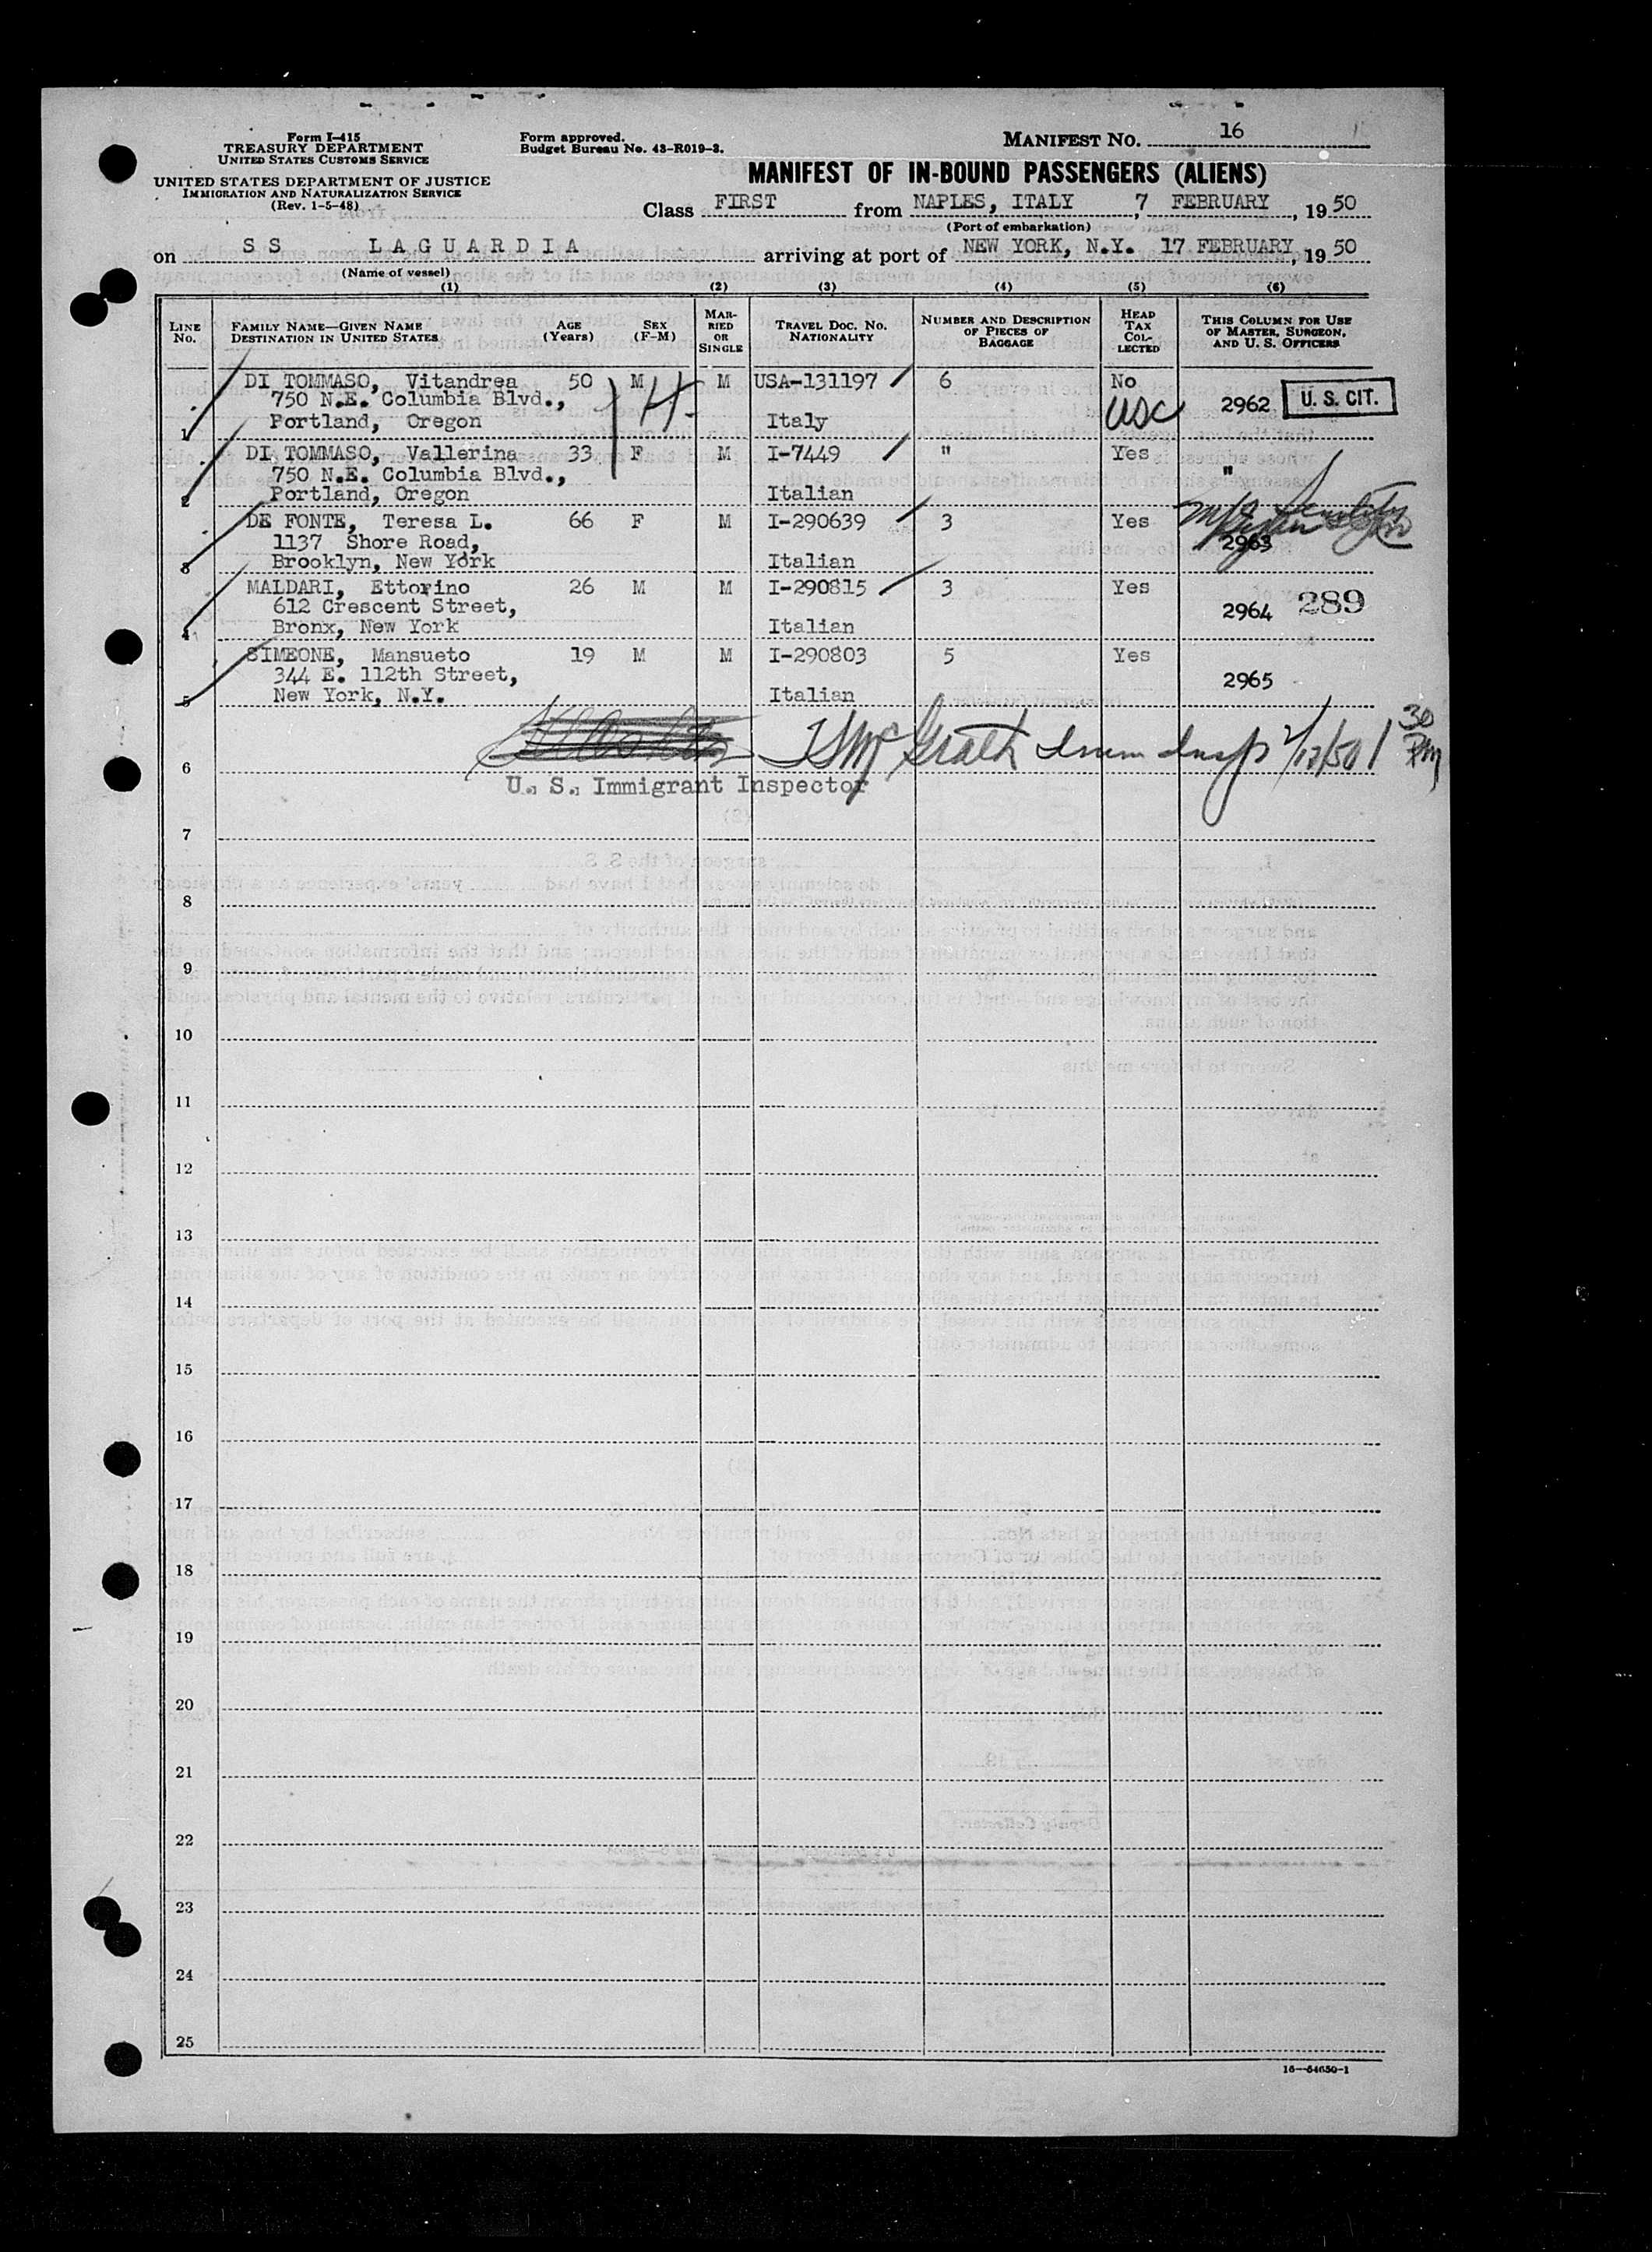 Form I-415
TREASURY DEPARTMENT
UNITED STATES CUSTOMS SERVICE
UNITED STATES DEPARTMENT OF JUSTICE
IMMIGRATION AND NATURALIZATION SERVICE
(Rev. 1-5-48)
Form approved.
Budget Bureau No. 43-R019-3.
MANIFEST NO. 16
MANIFEST OF IN-BOUND PASSENGERS (ALIENS)
Class FIRST from NAPLES, ITALY, 7 FEBRUARY, 19 50
(Port of embarkation)
on SS LAGUARDIA arriving at port of NEW YORK, N.Y. 17 FEBRUARY, 19 50
(Name of vessel)
(1) (2) (3) (4) (5) (6)
LINE No. FAMILY NAME—GIVEN NAME DESTINATION IN UNITED STATES AGE (Years) SEX (F-M) MARRIED OR SINGLE TRAVEL DOC. NO. NATIONALITY NUMBER AND DESCRIPTION OF PIECES OF BAGGAGE HEAD TAX COLLECTED THIS COLUMN FOR USE OF MASTER, SURGEON, AND U. S. OFFICERS
DI TOMMASO, Vitandrea 50 M M USA-131197 6 No
750 N.E. Columbia Blvd., USC 2962 U. S. CIT.
1 Portland, Oregon Italy
DI TOMMASO, Vallerina 33 F M I-7449 " Yes
750 N.E. Columbia Blvd., "
2 Portland, Oregon Italian
DE FONTE, Teresa L. 66 F M I-290639 3 Yes
1137 Shore Road, 2963
3 Brooklyn, New York Italian
MALDARI, Ettorino 26 M M I-290815 3 Yes
612 Crescent Street, 2964 289
4 Bronx, New York Italian
SIMEONE, Mansueto 19 M M I-290803 5 Yes
344 E. 112th Street, 2965
5 New York, N.Y. Italian
McGrath Imm Insp 2/17/50 1 30 PM
6
U. S. Immigrant Inspector
7
8
9
10
11
12
13
14
15
16
17
18
19
20
21
22
23
24
25
16—54650-1